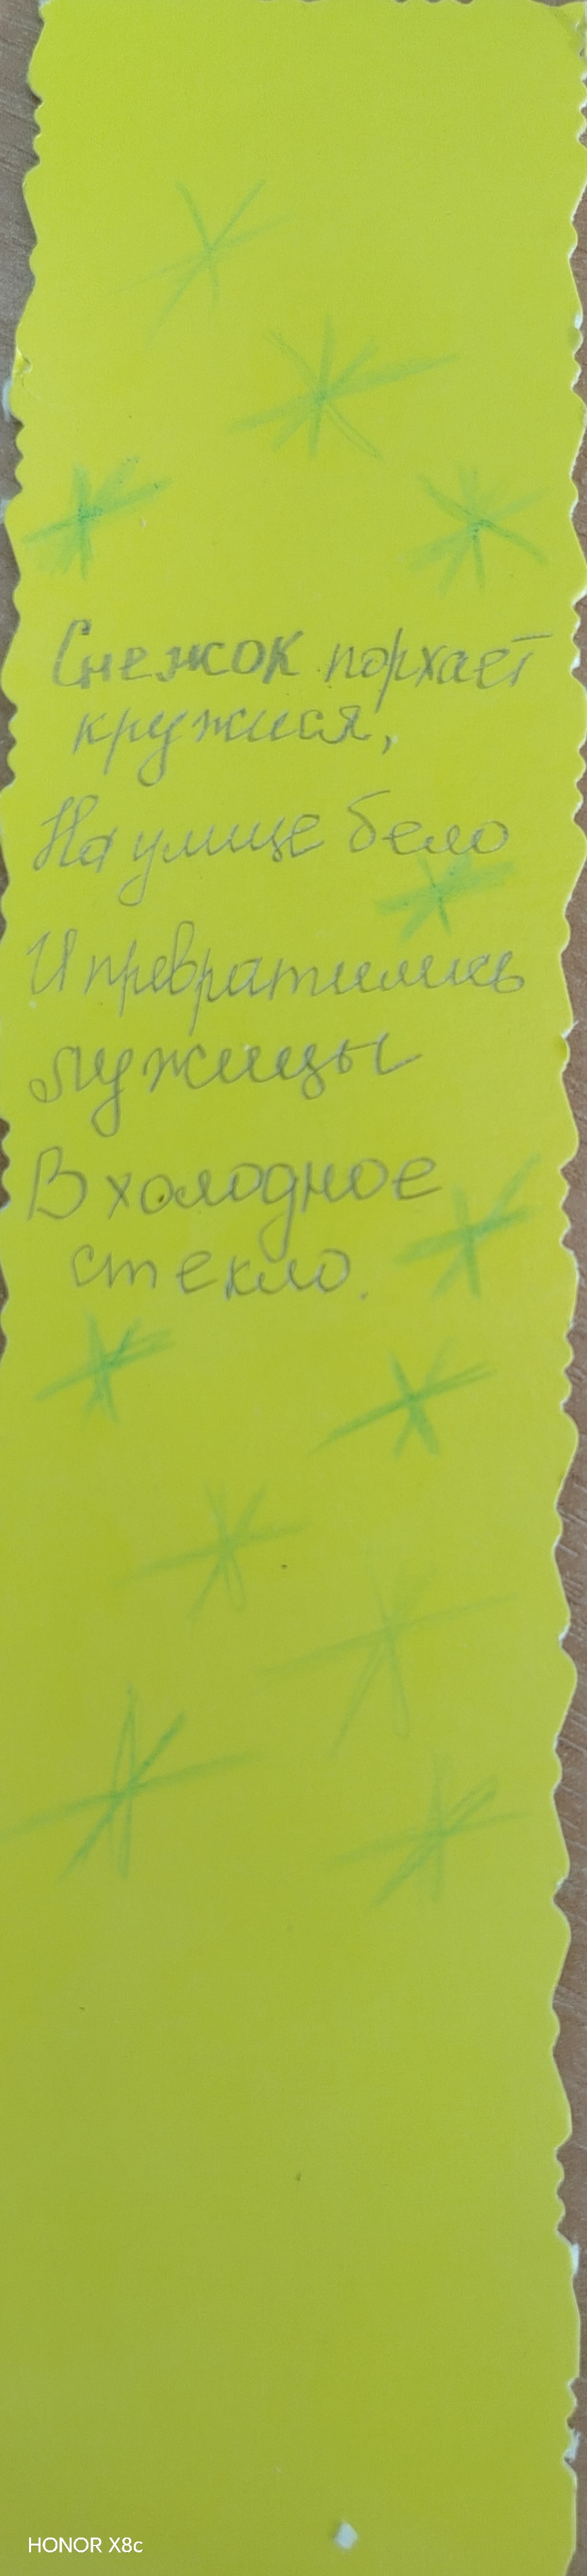 Снежок порхает
кружися,
На улице бело
И превратились
лужицы
В холодное
стекло.
HONOR X8c